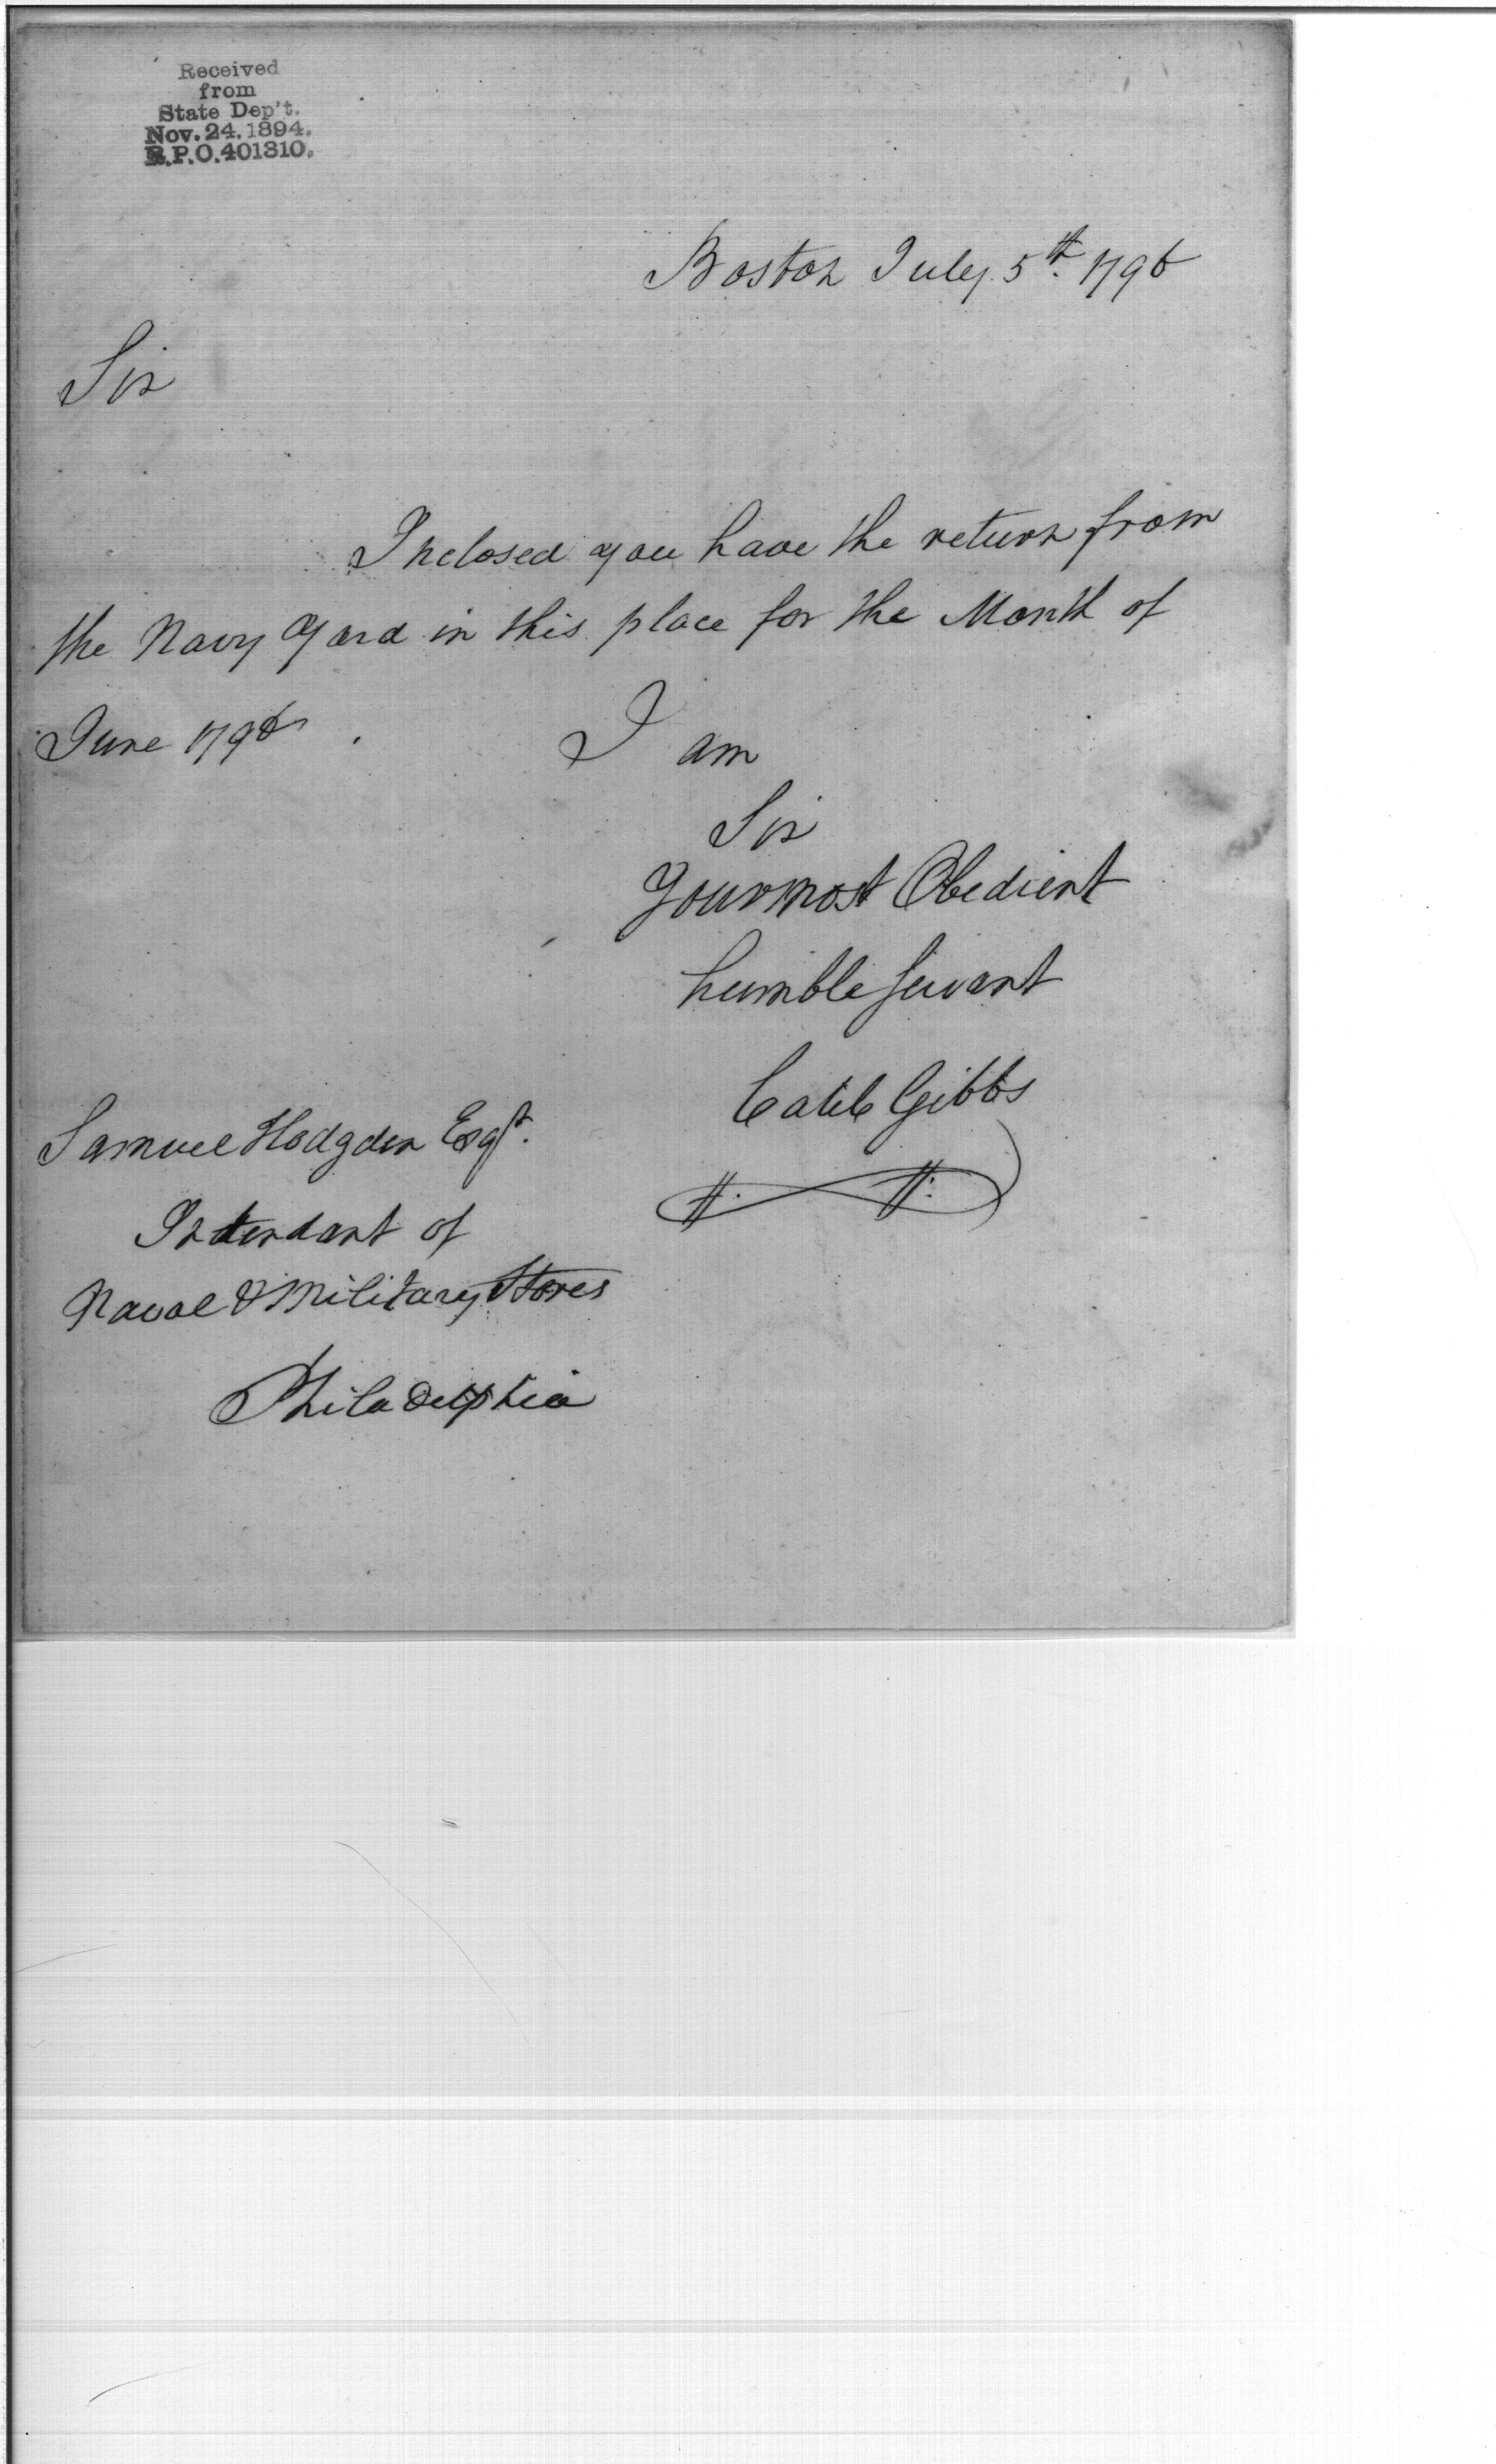 Received
from
State Dep't.
Nov. 24. 1894.
R.P.O. 401310.
Boston July 5th. 1796
Sir
Inclosed you have the return from
the Navy Yard in this place for the Month of
June 1796. I am
Sir
Your most Obedient
humble servant
Caleb Gibbs
Samuel Hodgden Esqr.
Intendant of
Naval & Military Stores
Philadelphia